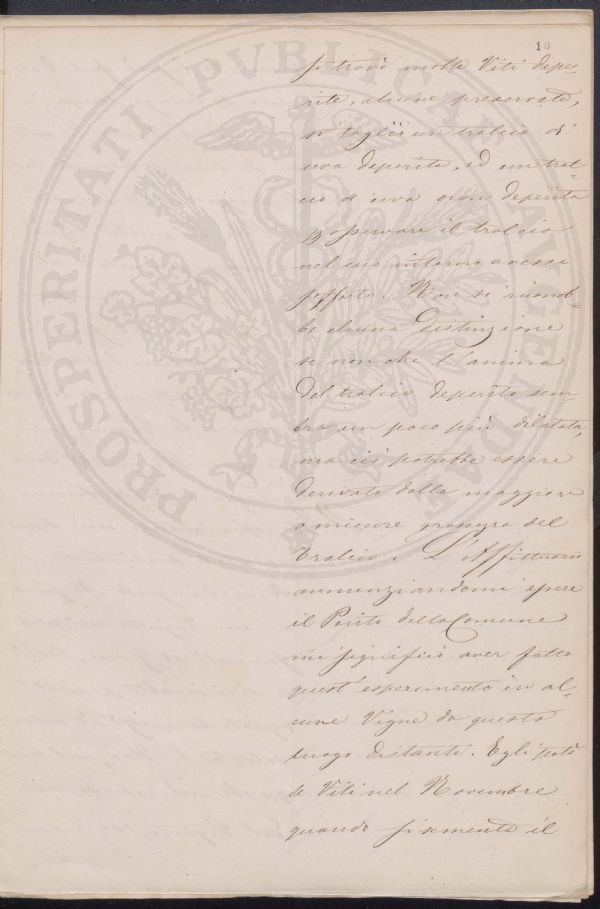 10
si trovò molte Viti depe-
rite, alcune preservate,
si tagliò un tralcio d'
uva deperita, ed un tral-
cio d'uva non deperita
p osservare il tralcio
nel suo interno avesse
sofferto. Non si rinob-
be alcuna distinzione
se non che l'anima
del tralcio deperito sem
bra un poco più dilatata,
ma ciò potrebbe essere
derivato dalla maggiore
o minore grossezza del
Tralcio. L'Affittuario
annunziandomi essere
il Perito della Comune
mi significò aver fatto
quest'esperimento in al-
cune Vigne da questo
luogo distanti. Egli potò
le Viti nel Novembre
quando si sementa il
PROSPERITATI PVBLICAE AVGENDAE